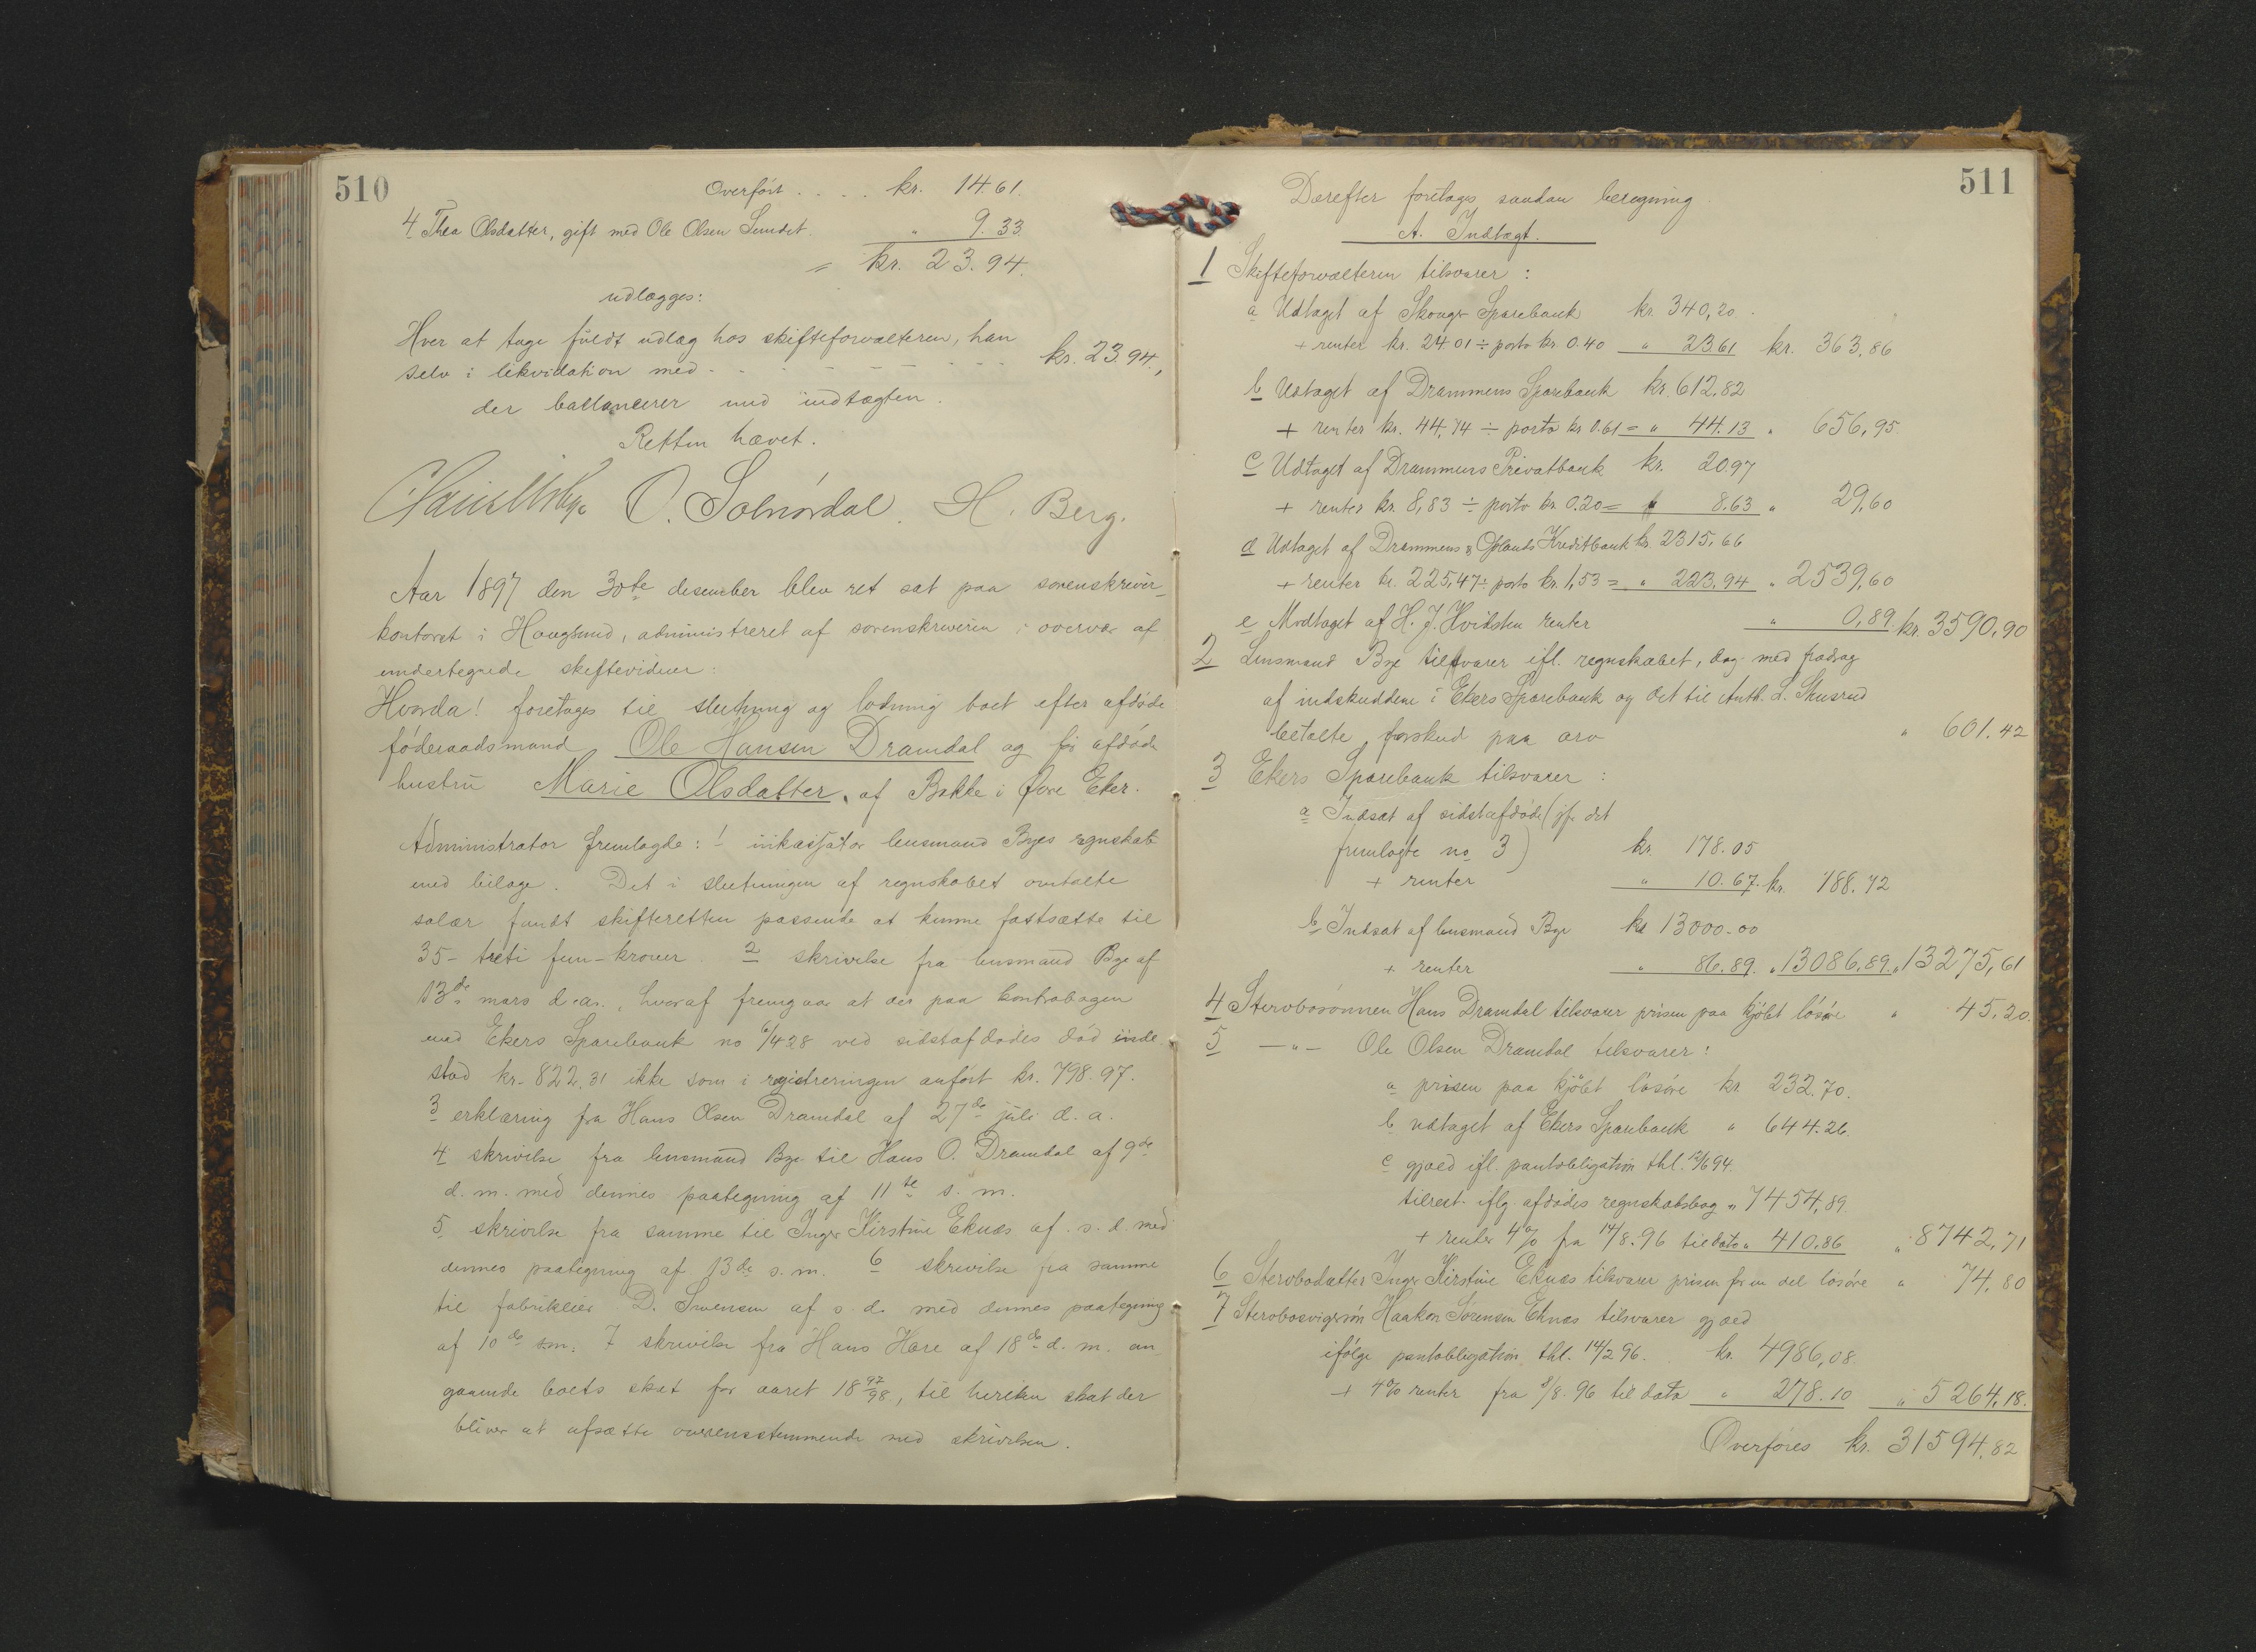 510
Overført . . . . kr. 14.61.
4 Thea Olsdatter, gift med Ole Olsen Sundet. " 9.33
= kr. 23.94.
udlægges:
Hver at tage fuldt udlæg hos skifteforvalteren, han
selv i likvidation med - - - - - - - kr. 23.94,
der ballancerer med indtægten.
Retten hævet.
O. Solnørdal. H. Berg.
Aar 1897 den 30te desember blev ret sat paa sorenskriver-
kontoret i Hougsund, administreret af sorenskriveren i overvær af
undertegnede skiftevidner:
Hvorda! foretages til slutning og lodning boet efter afdøde
føderaadsmand Ole Hansen Dramdal og før afdøde
hustru Marie Olsdatter, af Bakke i Øvre Eker.
Administrator fremlagde: 1 inkassator lensmand Byes regnskab
med bilage. Det i slutningen af regnskabet omtalte
salær fandt skifteretten passende at kunne fastsætte til
35 - treti fem - kroner. 2 skrivelse fra lensmand Bye af
13de mars d. a., hvoraf fremgaar at der paa kontrabogen
med Ekers Sparebank no 6/428 ved sidstafdødes død inde
stod kr. 822.31 ikke som i registreringen anført kr. 798.97.
3 erklæring fra Hans Olsen Dramdal af 27de juli d. a.
4 skrivelse fra lensmand Bye til Hans O. Dramdal af 9de
d. m. med dennes paategning af 11te s. m.
5 skrivelse fra samme til Inger Kirstine Eknæs af s. d. med
dennes paategning af 13de s. m. 6 skrivelse fra samme
til fabrikeier D. Svensen af s. d. med dennes paategning
af 10de s.m. 7 skrivelse fra Hans Hære af 18de d. m. an
gaaende boets skat for aaret 18 97/98, til hvilken skat der
bliver at afsætte overensstemmende med skrivelsen.
511
Derefter foretages saadan beregning.
A. Indtægt.
1 Skifteforvalteren tilsvarer :
a Udtaget af Skouger Sparebank kr. 340,20.
+ renter kr. 24.01 ÷ porto kr 0.40 " 23.61 kr. 363,86
b Udtaget af Drammens Sparebank kr. 612.82
+ renter kr. 44,74 ÷ porto kr 0.61 = " 44.13 " 656,95
c Udtaget af Drammens Privatbank kr. 20.97
+ renter kr. 8,83 ÷ porto kr. 0.20 = " 8.63 " 29,60
d Udtaget af Drammens & Oplands Kreditbank kr. 2315,66
+ renter kr. 225,47 ÷ porto kr. 1,53 = " 223.94 " 2539,60
e Modtaget af H. J. Hvidsten renter " 0,89. kr. 3590,90
2 Lensmand Bye tilsvarer ifl. regnskabet, dog med fradrag
af indskuddene i Ekers Sparebank og det til Anth. L. Skusrud
betalte forskud paa arv " 601.42
3 Ekers Sparebank tilsvarer :
a Indsat af sidstafdøde (jfr det
fremlagte no 3) kr. 178.05
+ renter " 10.67. kr. 188.72
b Indsat af lensmand Bye kr 13000.00
+ renter " 86.89. " 13086.89. " 13275,61
4 Stervbosønnen Hans Dramdal tilsvarer prisen paa kjøbt løsøre " 45,20.
5 — " — Ole Olsen Dramdal tilsvarer :
a prisen paa kjøbt løsøre kr. 232.70.
b udtaget af Ekers Sparebank " 644.26.
c gjæld ifl. pantobligation thl. 12/6 94.
tilrest iflg afdødes regnskabsbog " 7454,89.
+ renter 4% fra 14/8.96 til dato " 410.86 " 8742,71
6 Stervbodatter Inger Kirstine Eknæs tilsvarer prisen for en del løsøre " 74,80
7 Stervbosvigersøn Haakon Sørensen Eknæs tilsvarer gjæld
ifølge pantobligation thl. 14/2 96. kr. 4986,08.
+ 4% renter fra 8/8.96 til dato " 278.10 " 5264,18.
Overføres kr. 31594,82